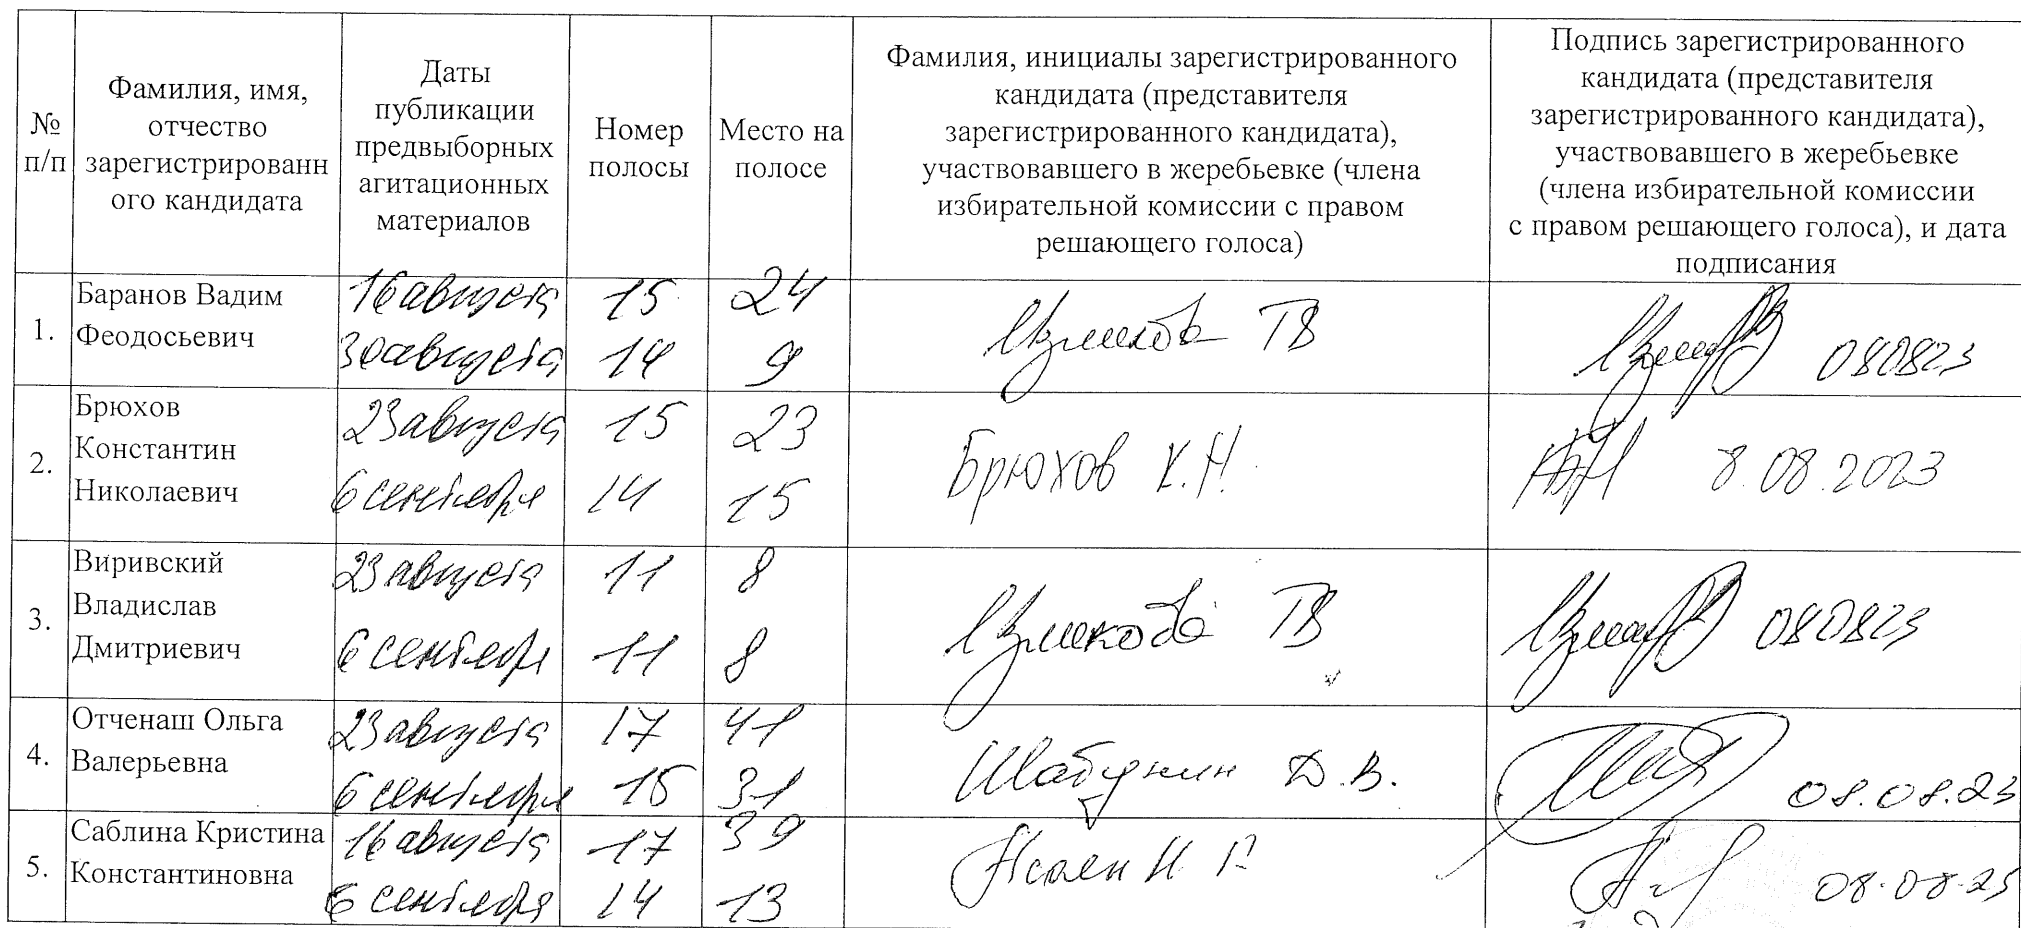 №
п/п
Фамилия, имя,
отчество
зарегистрированн
ого кандидата
Даты
публикации
предвыборных
агитационных
материалов
Номер
полосы
Место на
полосе
Фамилия, инициалы зарегистрированного
кандидата (представителя
зарегистрированного кандидата),
участвовавшего в жеребьевке (члена
избирательной комиссии с правом
решающего голоса)
Подпись зарегистрированного
кандидата (представителя
зарегистрированного кандидата),
участвовавшего в жеребьевке
(члена избирательной комиссии
с правом решающего голоса), и дата
подписания
1.
Баранов Вадим
Феодосьевич
16 августа 15 24
30 августа 14 9
ТВ
080823
2.
Брюхов
Константин
Николаевич
23 августа 15 23
6 сентября 14 15
Брюхов К.Н.
8.08.2023
3.
Виривский
Владислав
Дмитриевич
23 августа 11 8
6 сентября 11 8
ТВ
080823
4.
Отченаш Ольга
Валерьевна
23 августа 17 41
6 сентября 15 31
Шабунин Д.В.
08.08.23
5.
Саблина Кристина
Константиновна
16 августа 17 39
6 сентября 14 13